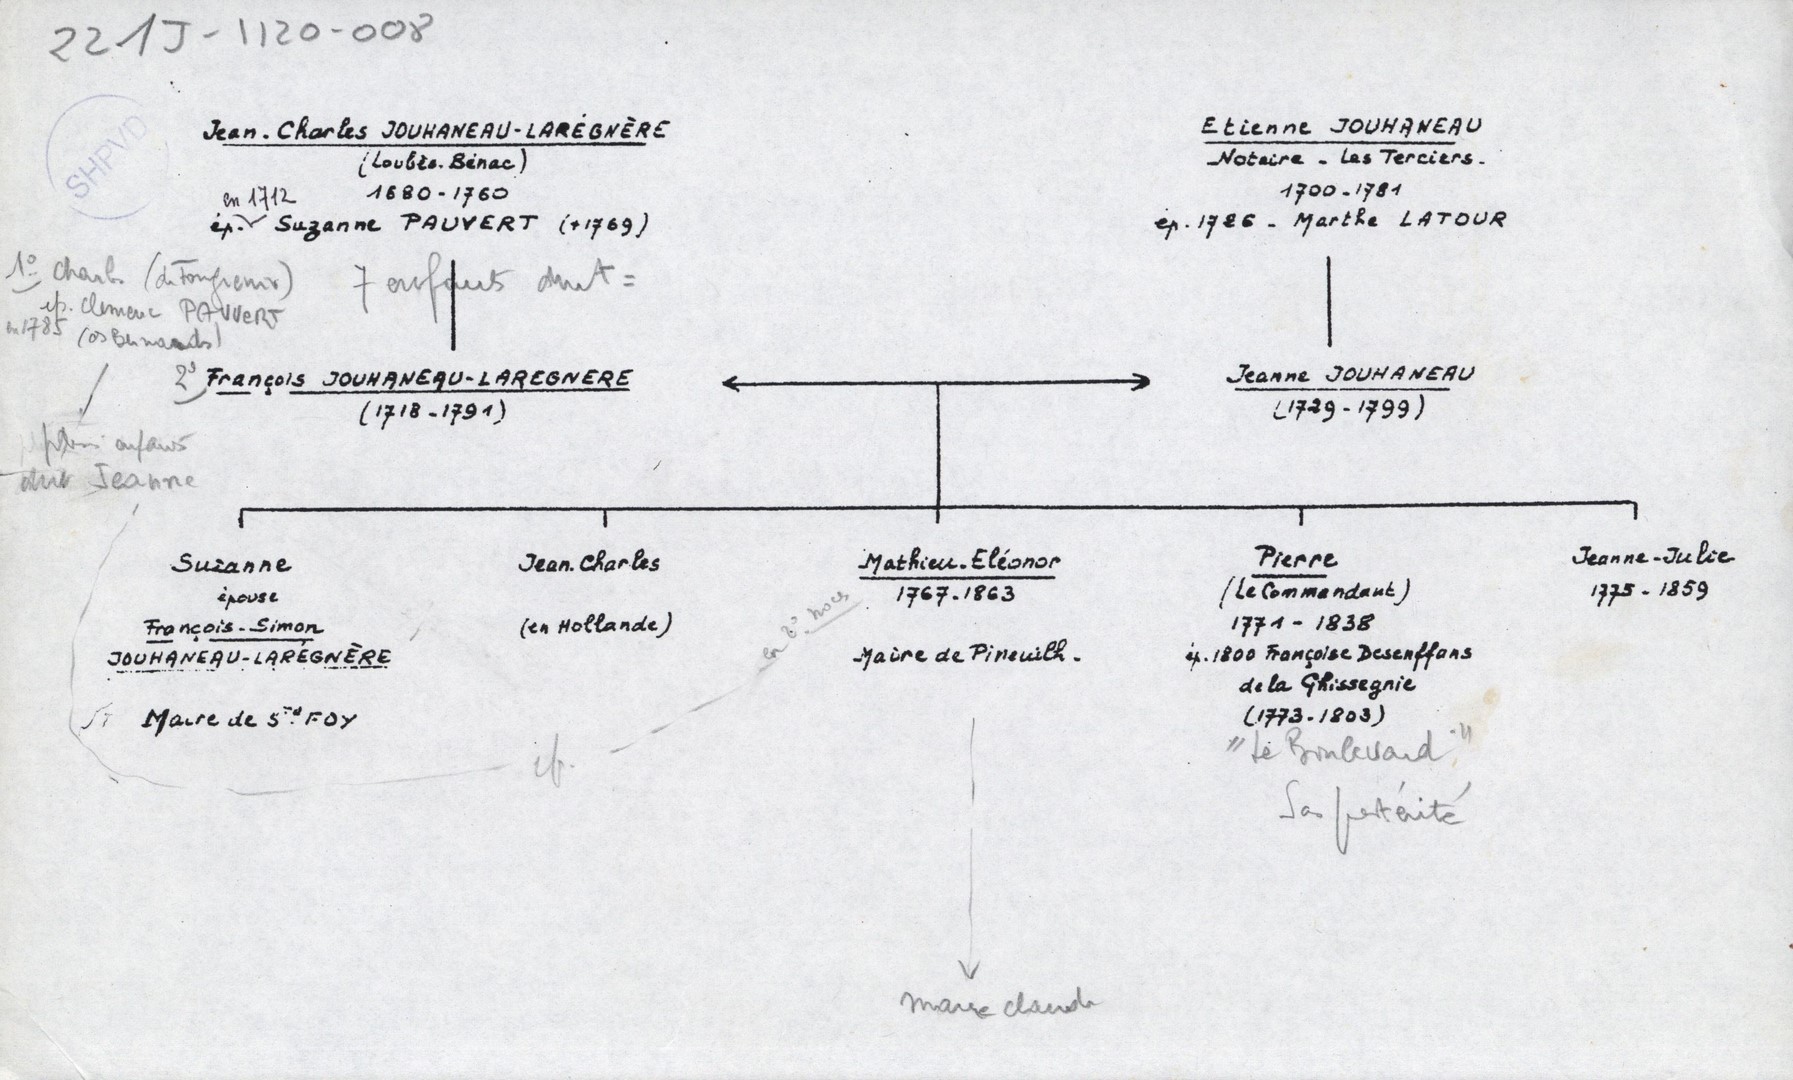 221J-1120-008
SHPVD
Jean.Charles JOUHANEAU-LARÉGNÈRE
(Loubès.Bénac)
1680-1760
en 1712
ép. Suzanne PAUVERT (+1769)
Etienne JOUHANEAU
Notaire - Les Terciers.
1700-1781
ép. 1726 - Marthe LATOUR
1° Charles
ep. Clemence PAUVERT
en 1785
7 enfants dont =
2° François JOUHANEAU-LAREGNERE
(1718-1791)
Jeanne JOUHANEAU
(1729-1799)
enfants
dont Jeanne
Suzanne
épouse
François-Simon
JOUHANEAU-LARÉGNÈRE
Maire de Ste FOY
Jean.Charles
(en Hollande)
Mathieu.Eléonor
1767.1863
Maire de Pineuilh.
Pierre
(Le Commandant)
1771-1838
ép. 1800 Françoise Desenffans
de la Ghissegnie
(1773-1803)
"Le Boulevard"
postérité
Jeanne-Julie
1775-1859
en 2° noces
ep.
Marie Claude